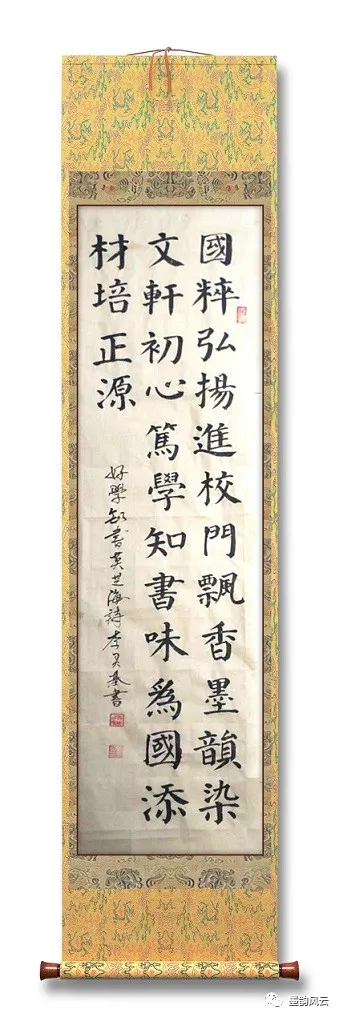 國粹弘揚進校門飄香墨韻染
文軒初心篤學知書味爲國添
材培正源
好學知書黃芝海詩李又基書
墨韵风云